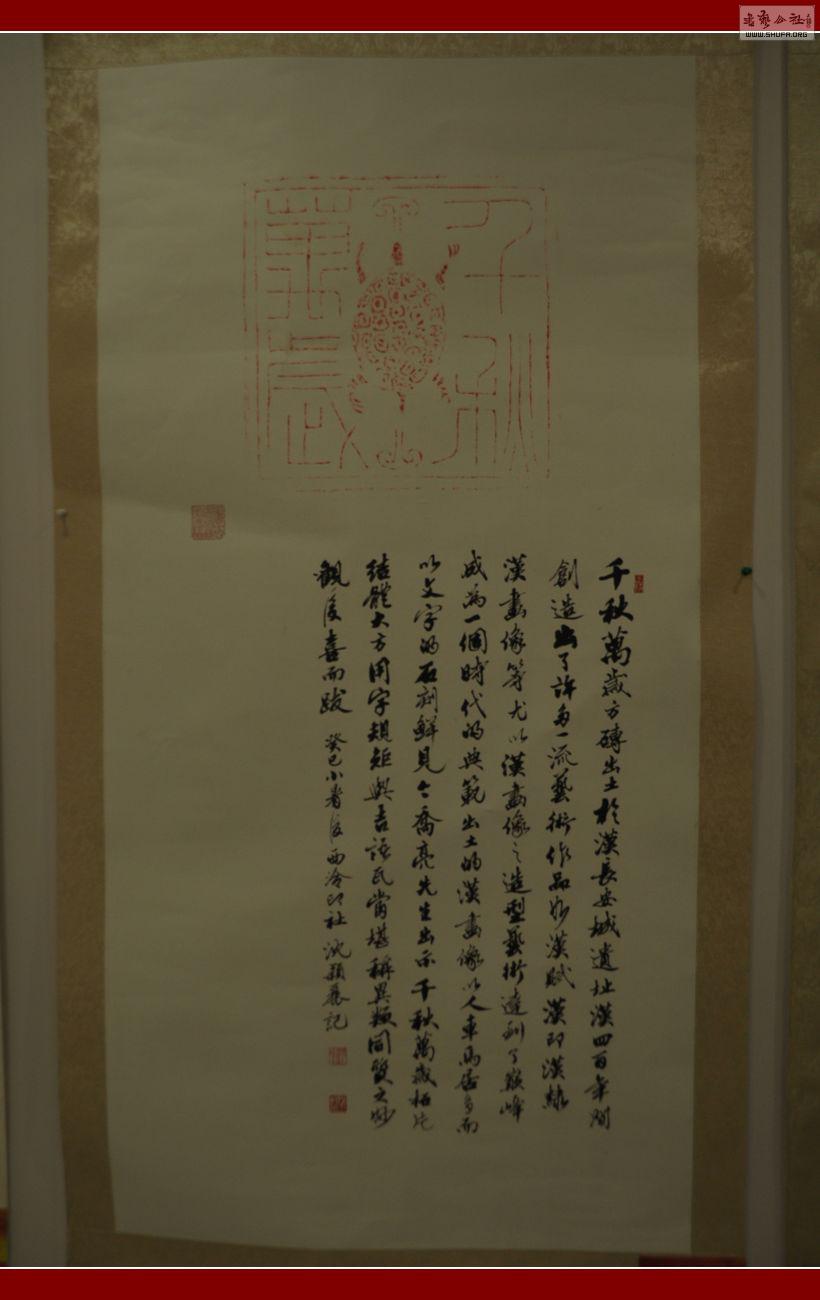 千秋
萬歲
千秋萬歲方磚出土於漢長安城遺址漢四百年間
創造出了許多一流藝術作品如漢賦漢印漢隸
漢畫像等尤以漢畫像之造型藝術達到了巔峰
成為一個時代的典範出土的漢畫像以人車馬居多而
以文字的石刻鮮見今喬亮先生出示千秋萬歲拓片
結體大方用字規矩與吉語瓦當堪稱異類同質之妙
觀后喜而跋
癸巳小暑后西泠印社沈穎麗記
WWW.SHUFA.ORG